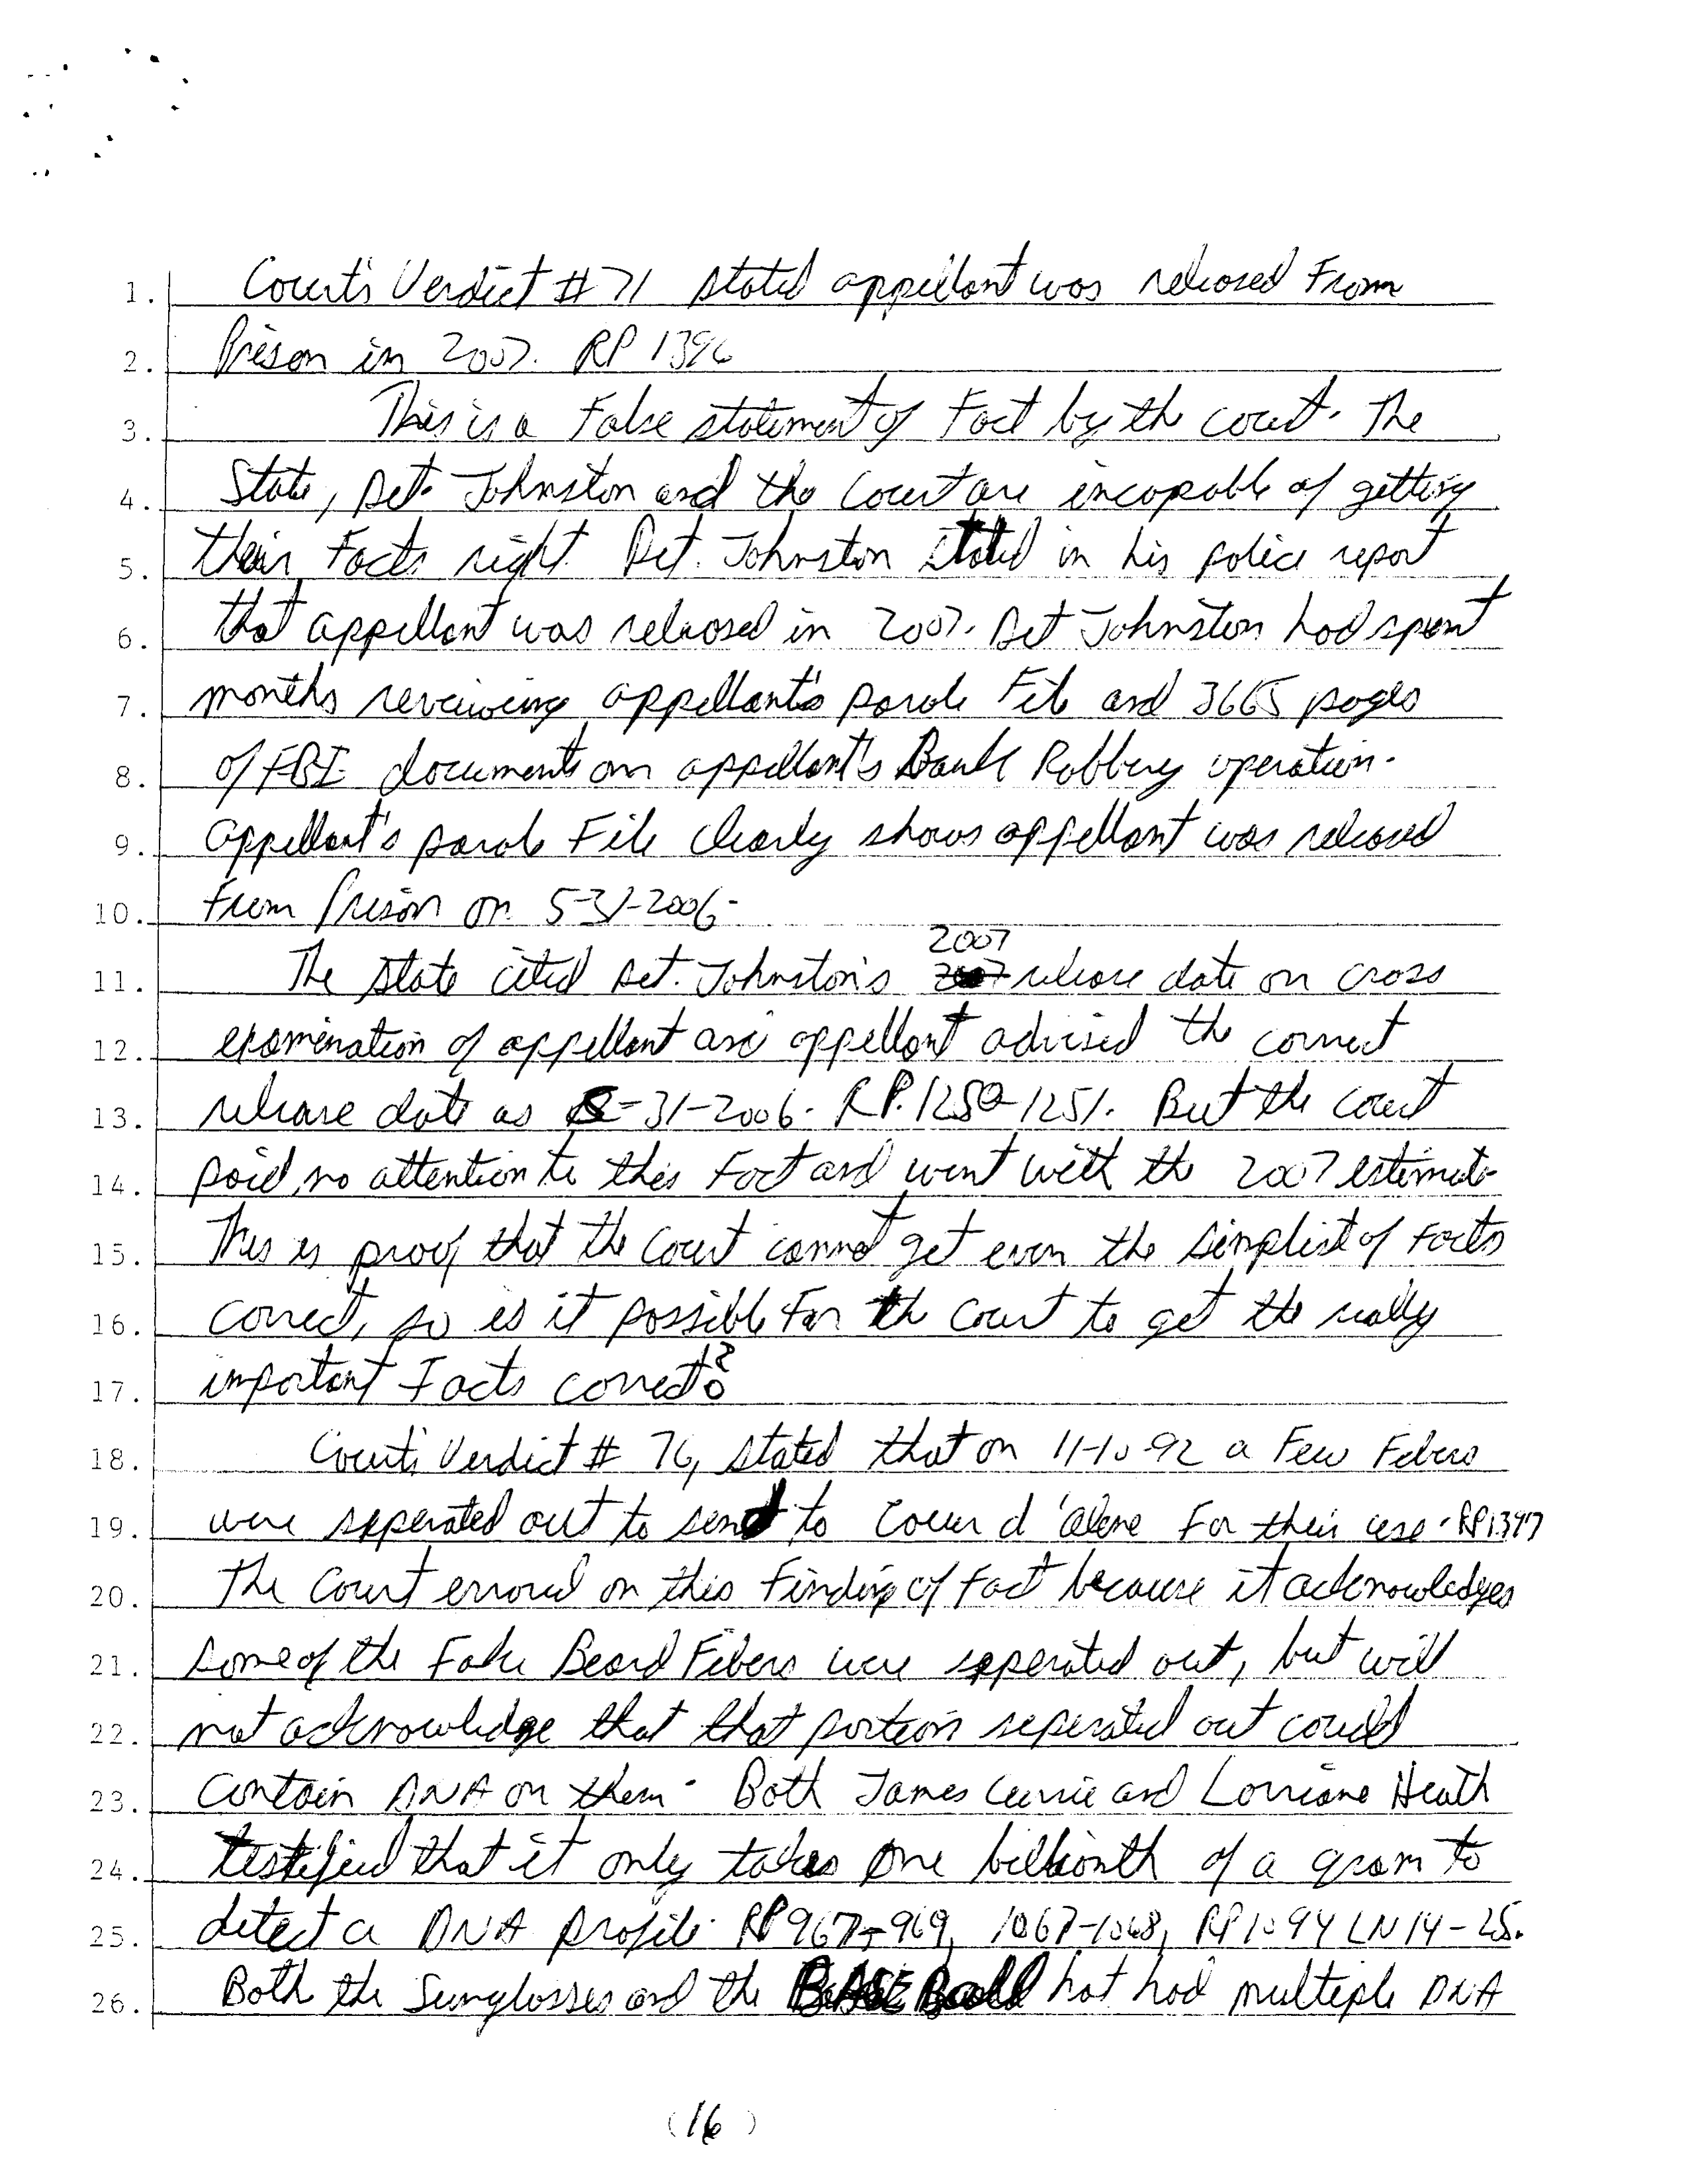 1. Court's Verdict # 71 stated appellant was released From
2. Prison in 2007. RP 1396
3. This is a False statement of Fact by the court. The
4. State, Det. Johnston and the Court are incapable of getting
5. their Facts right. Det. Johnston stated in his police report
6. that appellant was released in 2007. Det Johnston had spent
7. months reveiwing appellant's parole File and 3665 pages
8. of FBI documents on appellant's Bank Robbery operation.
9. Appellant's parole File clearly shows appellant was released
10. From Prison on 5-31-2006.
2007
11. The State cited Det. Johnston's release date on cross
12. examination of appellant and appellant advised the correct
13. release date as 5-31-2006. RP. 1250-1251. But the court
14. paid no attention to this Fact and went with the 2007 estimate.
15. This is proof that the Court cannot get even the simplist of Facts
16. correct, so is it possible For the Court to get the really
17. important Facts correct?
18. Court's Verdict # 76, stated that on 11-10-92 a Few Fibers
19. were seperated out to send to Coeur d 'alene For their use. RP1397
20. The Court erroud on this Finding of Fact because it acknowledges
21. some of the Fake Beard Fibers were seperated out, but will
22. not acknowledge that that portion seperated out could
23. contain DNA on them. Both James Currie and Lorriane Heath
24. testified that it only takes one billionth of a gram to
25. detect a DNA profile. RP 967-969, 1067-1068, RP 1094 LN 14-25.
26. Both the Sunglasses and the BASE Ball hat had multiple DNA
(16)